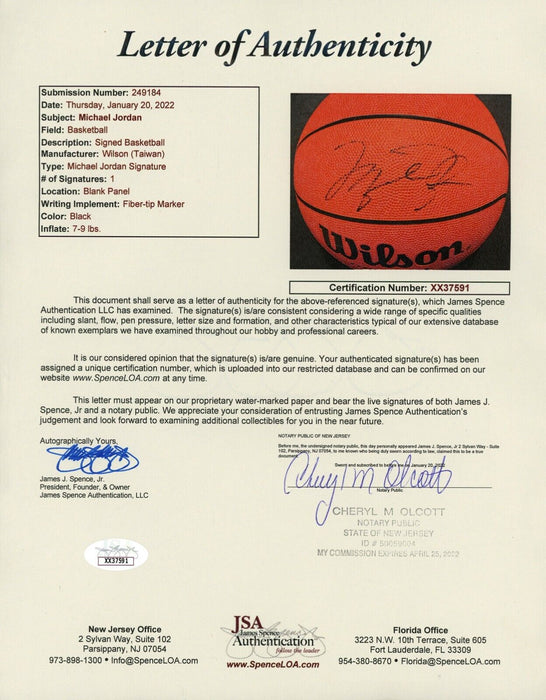 Letter of Authenticity
Submission Number: 249184
Date: Thursday, January 20, 2022
Subject: Michael Jordan
Field: Basketball
Description: Signed Basketball
Manufacturer: Wilson (Taiwan)
Type: Michael Jordan Signature
# of Signatures: 1
Location: Blank Panel
Writing Implement: Fiber-tip Marker
Color: Black
Inflate: 7-9 lbs.
Wilson
Certification Number: XX37591
This document shall serve as a letter of authenticity for the above-referenced signature(s), which James Spence
Authentication LLC has examined. The signature(s) is/are consistent considering a wide range of specific qualities
including slant, flow, pen pressure, letter size and formation, and other characteristics typical of our extensive database
of known exemplars we have examined throughout our hobby and professional careers.
It is our considered opinion that the signature(s) is/are genuine. Your authenticated signature(s) has been
assigned a unique certification number, which is uploaded into our restricted database and can be confirmed on our
website www.SpenceLOA.com at any time.
This letter must appear on our proprietary water-marked paper and bear the live signatures of both James J.
Spence, Jr and a notary public. We appreciate your consideration of entrusting James Spence Authentication's
judgement and look forward to examining additional collectibles for you in the near future.
Autographically Yours,
James J. Spence, Jr.
President, Founder, & Owner
James Spence Authentication, LLC
NOTARY PUBLIC OF NEW JERSEY
Before me, the undersigned notary, this day personally appeared James J. Spence, Jr 2 Sylvan Way - Suite
102, Parsippany, NJ 07054, to me known who being duly sworn according to law, claimed this to be a true
document.
Sworn and subscribed to before me on January 20, 2022
Cheryl M Olcott
Notary Public
CHERYL M OLCOTT
NOTARY PUBLIC
STATE OF NEW JERSEY
ID # 50059004
MY COMMISSION EXPIRES APRIL 25, 2022
XX37591
New Jersey Office
2 Sylvan Way, Suite 102
Parsippany, NJ 07054
973-898-1300 • Info@SpenceLOA.com
JSA
James Spence
Authentication
follow the leader
www.SpenceLOA.com
Florida Office
3223 N.W. 10th Terrace, Suite 605
Fort Lauderdale, FL 33309
954-380-8670 • Florida@SpenceLOA.com